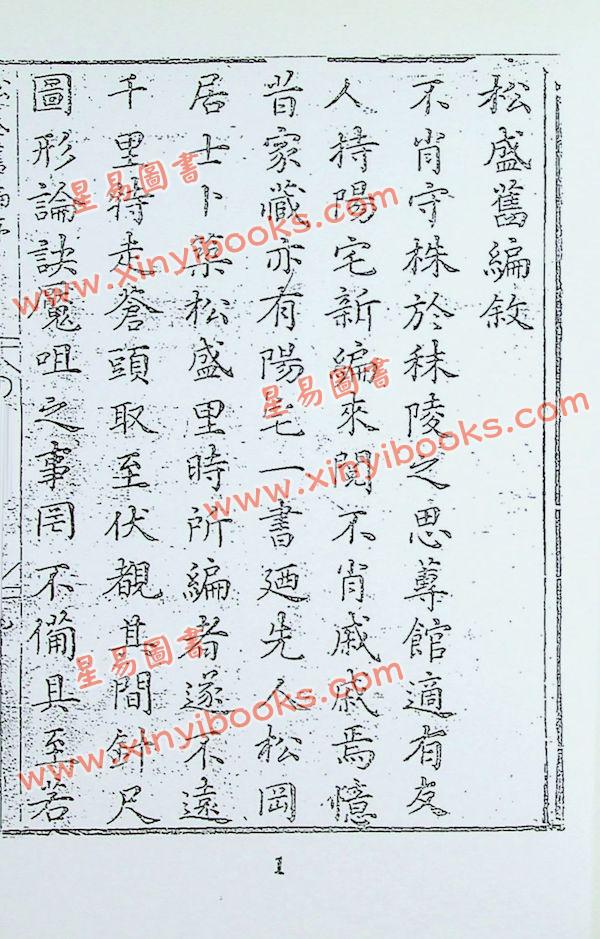 松盛舊編敘
不肖守株於秣陵之思蓴館適有友
人持陽宅新編來閱不肖戚戚焉憶
昔家藏亦有陽宅一書廼先人松岡
居士卜藥松盛里時所編者遂不遠
千里特走蒼頭取至伏觀其間針尺
圖形論訣魘咀之事罔不備具至若
1
星易圖書
www.xinyibooks.com
星易圖書
www.xinyibooks.com
星易圖書
www.xinyibooks.com